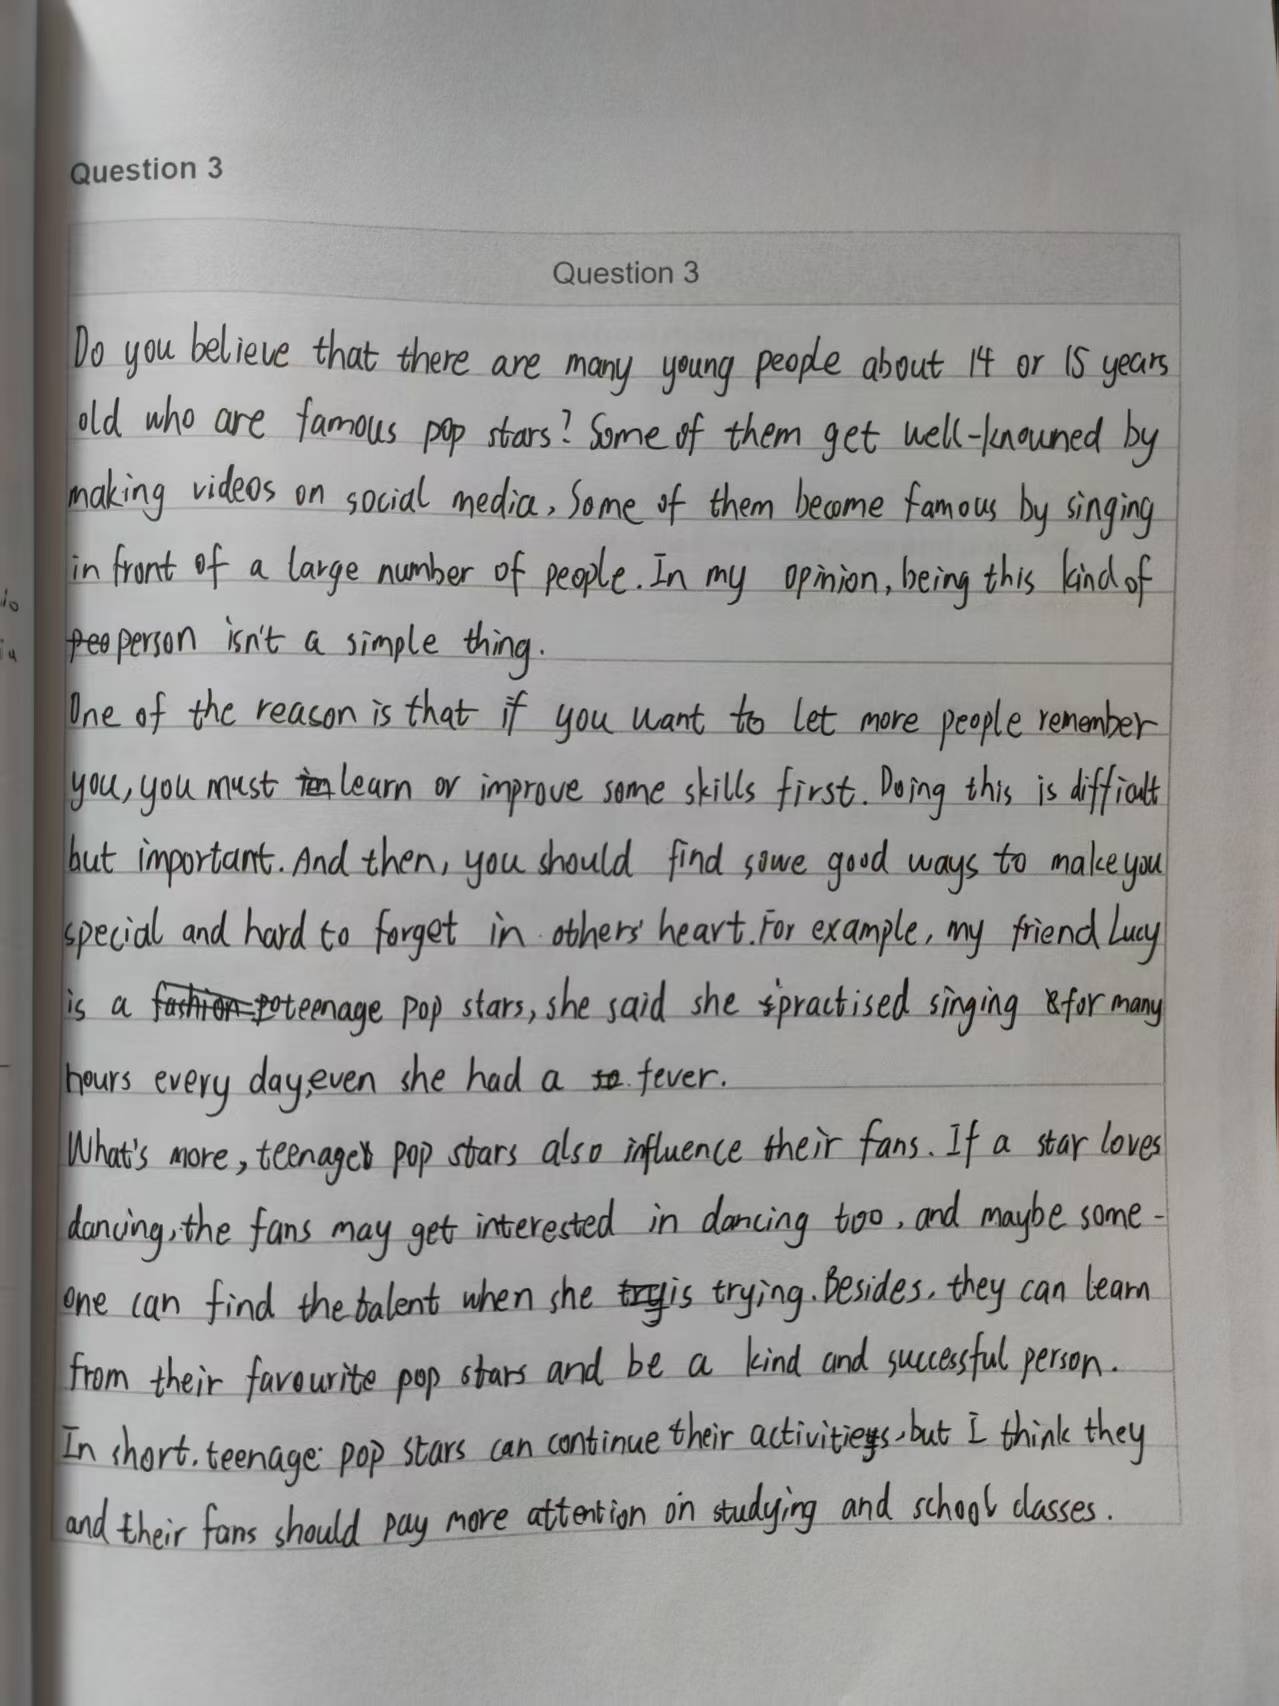 Question 3
Question 3
Do you believe that there are many young people about 14 or 15 years
old who are famous pop stars? Some of them get well-knouned by
making videos on social media, Some of them become famous by singing
in front of a large number of people. In my opinion, being this kind of
peo person isn't a simple thing.
One of the reason is that if you want to let more people remember
you, you must learn or improve some skills first. Doing this is difficult
but important. And then, you should find some good ways to make you
special and hard to forget in others' heart. For example, my friend Lucy
is a fashion po teenage pop stars, she said she practised singing for many
hours every day, even she had a fever.
What's more, teenage pop stars also influence their fans. If a star loves
dancing, the fans may get interested in dancing too, and maybe some-
one can find the talent when she try is trying. Besides, they can learn
from their favourite pop stars and be a kind and successful person.
In short, teenage pop stars can continue their activities, but I think they
and their fans should pay more attention on studying and school classes.